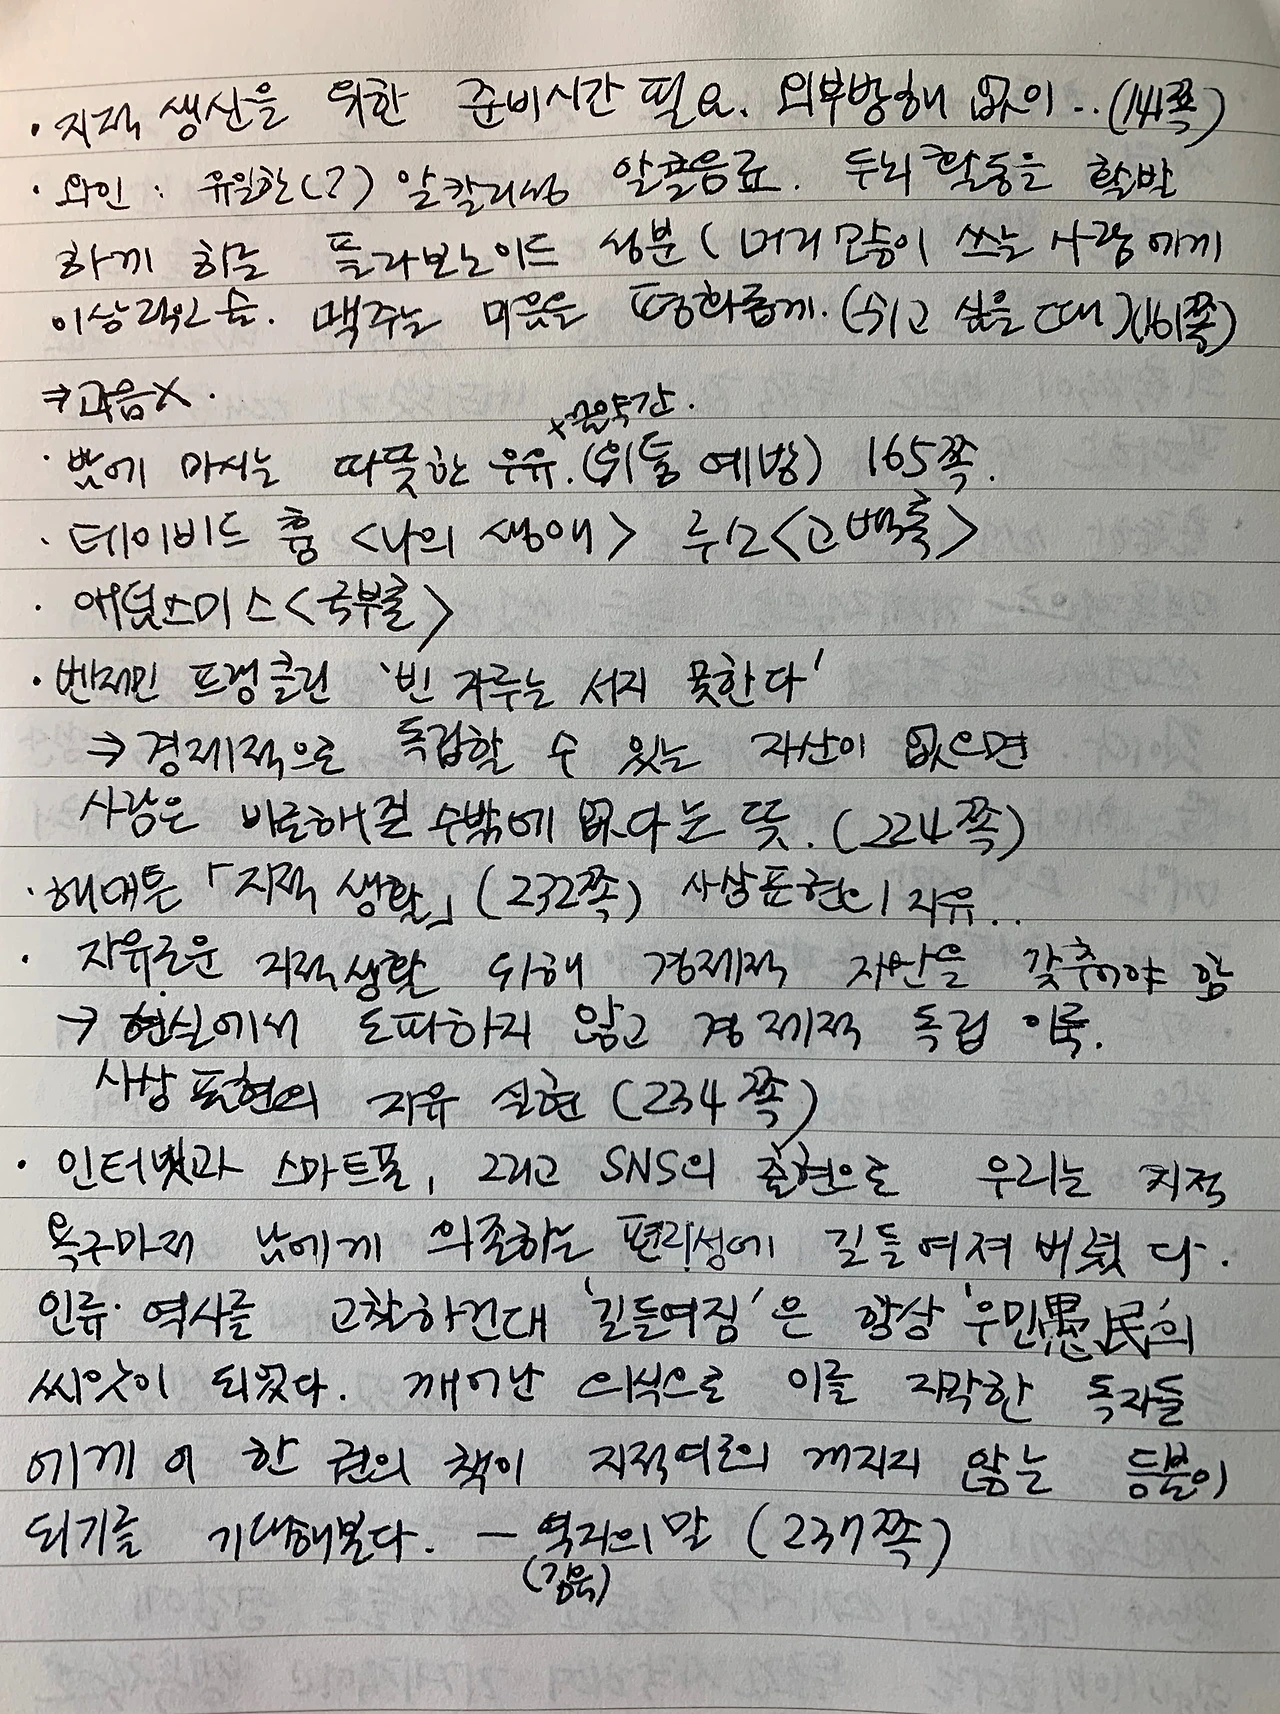 · 지적 생산을 위한 준비시간 필요. 외부방해 없이.. (141쪽)
· 와인 : 유일한(?) 알칼리성 알콜음료. 두뇌 활동을 활발
하게 하는 플라보노이드 성분 ( 머리 많이 쓰는 사람에게
이상적인 술. 맥주는 마음을 평화롭게. (쉬고 싶을 때)(161쪽)
⇒ 과음X.
+ 꿀약간.
· 밤에 마시는 따뜻한 우유. (위통 예방) 165쪽.
· 데이비드 흄 <나의 생애> 루소<고백록>
· 애덤스미스<국부론>
· 벤저민 프랭클린 '빈 자루는 서지 못한다'
⇒ 경제적으로 독립할 수 있는 자산이 없으면
사람은 비굴해질 수밖에 없다는 뜻. (224쪽)
· 해머튼 「지적 생활」 (232쪽) 사상표현의 자유..
· 자유로운 지적생활 위해 경제적 자산을 갖추어야 함
→ 현실에서 도피하지 않고 경제적 독립 이룩.
사상 표현의 자유 실현 (234쪽)
· 인터넷과 스마트폰, 그리고 SNS의 출현으로 우리는 지적
욕구마저 남에게 의존하는 편리성에 길들여져 버렸다.
인류 역사를 고찰하건대 '길들여짐'은 항상 '우민愚民'의
씨앗이 되었다. 깨어난 의식으로 이를 자각한 독자들
에게 이 한 권의 책이 지적여로의 꺼지지 않는 등불이
되기를 기대해본다. — 역자의 말 (237쪽)
(김욱)